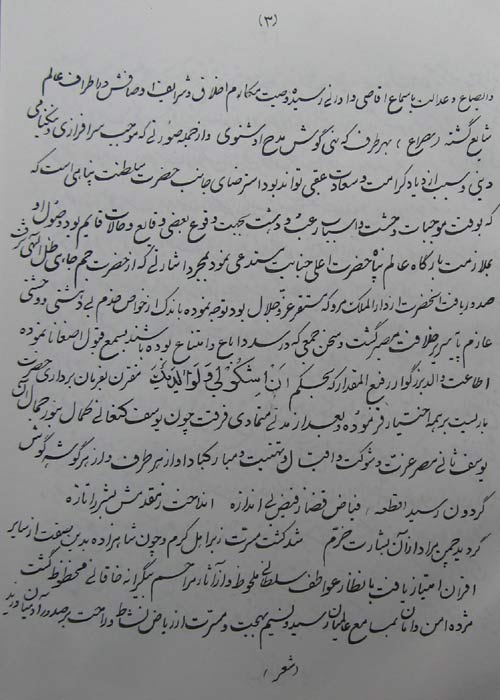 (۳)
و انصاع و عدالت باسماع اقاصی و ادانی رسیده وصیت مکارم اخلاق و شرایف اوصافش در اطراف عالم
شایع گشته (مصراع) بهر طرف که نهی گوش مدح او شنوی و از جمله صورتی که موجب سرافرازی و نیکنامی
دینی و سبب ازدیاد کرامت و سعادت عقبی تواند بود استرضای جانب حضرت سلطنت پناهی است که
که بوقت موجبات وحشت و اسباب رعب و دهشت بجهت وقوع بعضی وقایع و حالات قایم بود وصول او
بملازمت بارگاه عالم پناه حضرت اعلی جنابت مستدعی نمود بمجرد اشارتی که از حضرت جم جاهی ظل آلهی شرف
صدور یافت آنحضرت از دار الملک مرو که مستقر عز و جلال بود توجه نموده باندک از خواص خدم بی دهشتی و وحشتی
عازم پایه سریر خلافت مصیر گشت و سخن جمعی که در صدد اباع و امتناع بوده باشند بسمع قبول اصغا نانموده
اطاعت والد بزرگوار رفیع المقدار که بحکم ان اشکر لی ولوالدیک مقرن بفرمان برداری حضرت
باریست بر همه اختیار فرموده و بعد از مدتی تمادی فرقت چون یوسف کنعانی ظمال بنور جمال آن
یوسف ثانی مصر عزت و شوکت و اقبال و تهنیت و مبارکباد او از هر طرف و از هر گوشه بگوش
گردون رسید (قطعه) فیاض قضا ز فیض بی اندازه انداخت ز مقدمش بشهر آوازه
گردید چمن مراد از آن بشارت خرم شد کشت مسرت زبر اهل کرم و چون شاهزاده بدین صفت از سایر
اقران امتیاز یافت بانظار عواطف سلطانی ملحوظ و از آثار مراحم بیکرانه خاقانی محظوظ گشت
مژده امن و امان بمسامع عالمیان رسید و نسیم بهجت و مسرت از ریاض نشاط و راحت بر صدور آدمیان وزید
(شعر)